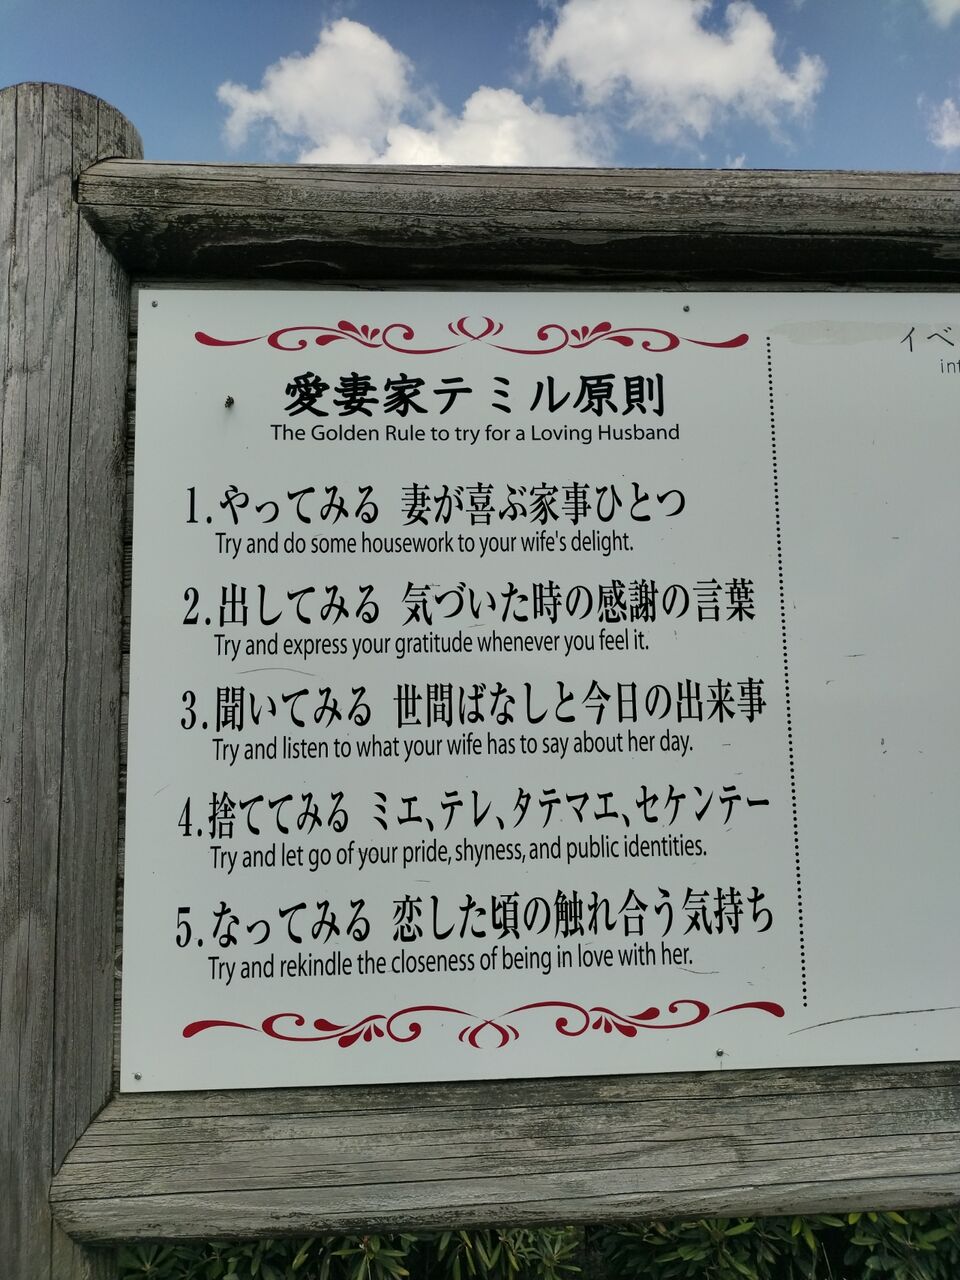 愛妻家テミル原則
The Golden Rule to try for a Loving Husband
1.やってみる 妻が喜ぶ家事ひとつ
Try and do some housework to your wife's delight.
2.出してみる 気づいた時の感謝の言葉
Try and express your gratitude whenever you feel it.
3.聞いてみる 世間ばなしと今日の出来事
Try and listen to what your wife has to say about her day.
4.捨ててみる ミエ、テレ、タテマエ、セケンテー
Try and let go of your pride, shyness, and public identities.
5.なってみる 恋した頃の触れ合う気持ち
Try and rekindle the closeness of being in love with her.
イベ
int